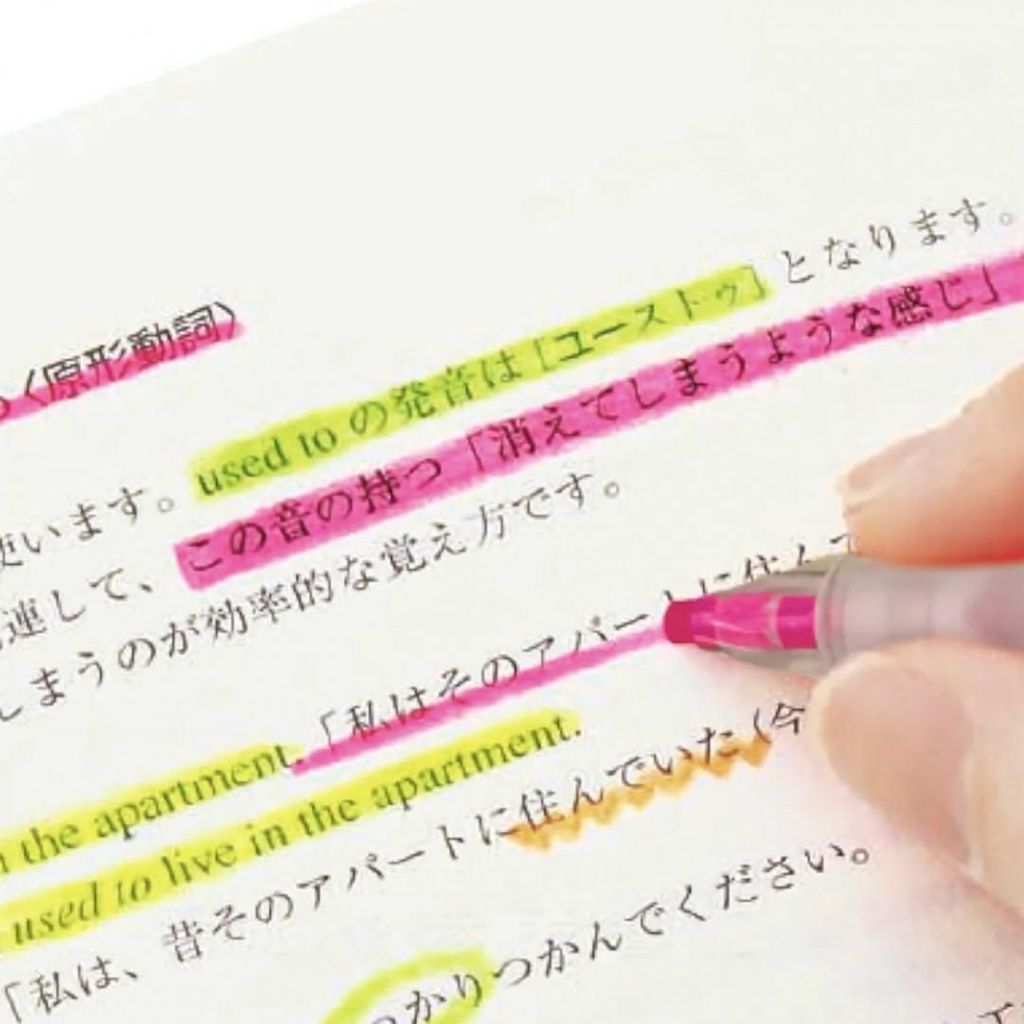 〈原形動詞〉
使います。used to の発音は［ユーストゥ］となります。
連して、この音の持つ「消えてしまうような感じ」
しまうのが効率的な覚え方です。
the apartment.「私はそのアパートに住んで
used to live in the apartment.
「私は、昔そのアパートに住んでいた（今
っかりつかんでください。